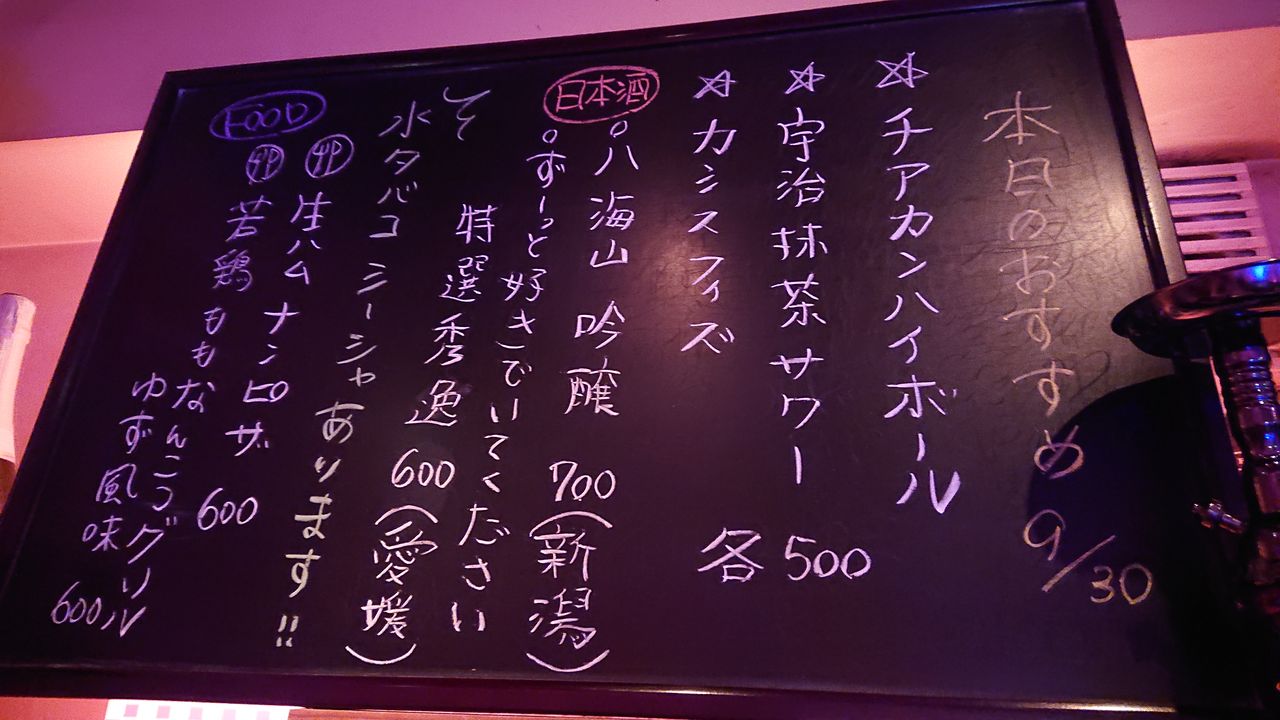 本日のおすすめ 9/30
☆チアカンハイボール
☆宇治抹茶サワー
☆カシスフィズ
各500
日本酒
○八海山 吟醸 700(新潟)
○ずーっと好きでいてください
特選 秀逸 600(愛媛)
水タバコ シーシャあります!!
FOOD
生ハム ナンピザ 600
若鶏ももなんこつグリル
ゆず風味 600